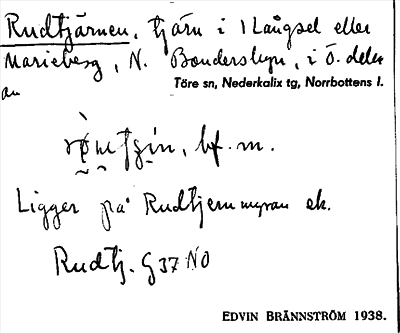 Rudtjärnen, tjärn i 1 Långsel eller
Marieberg, N. Bondersbyn, i Ö. delen
Töre sn, Nederkalix tg, Norrbottens l.
av
bf. m.
Ligger på Rudtjernmyran ek.
Rudtj. G 37 NO
EDVIN BRÄNNSTRÖM 1938.